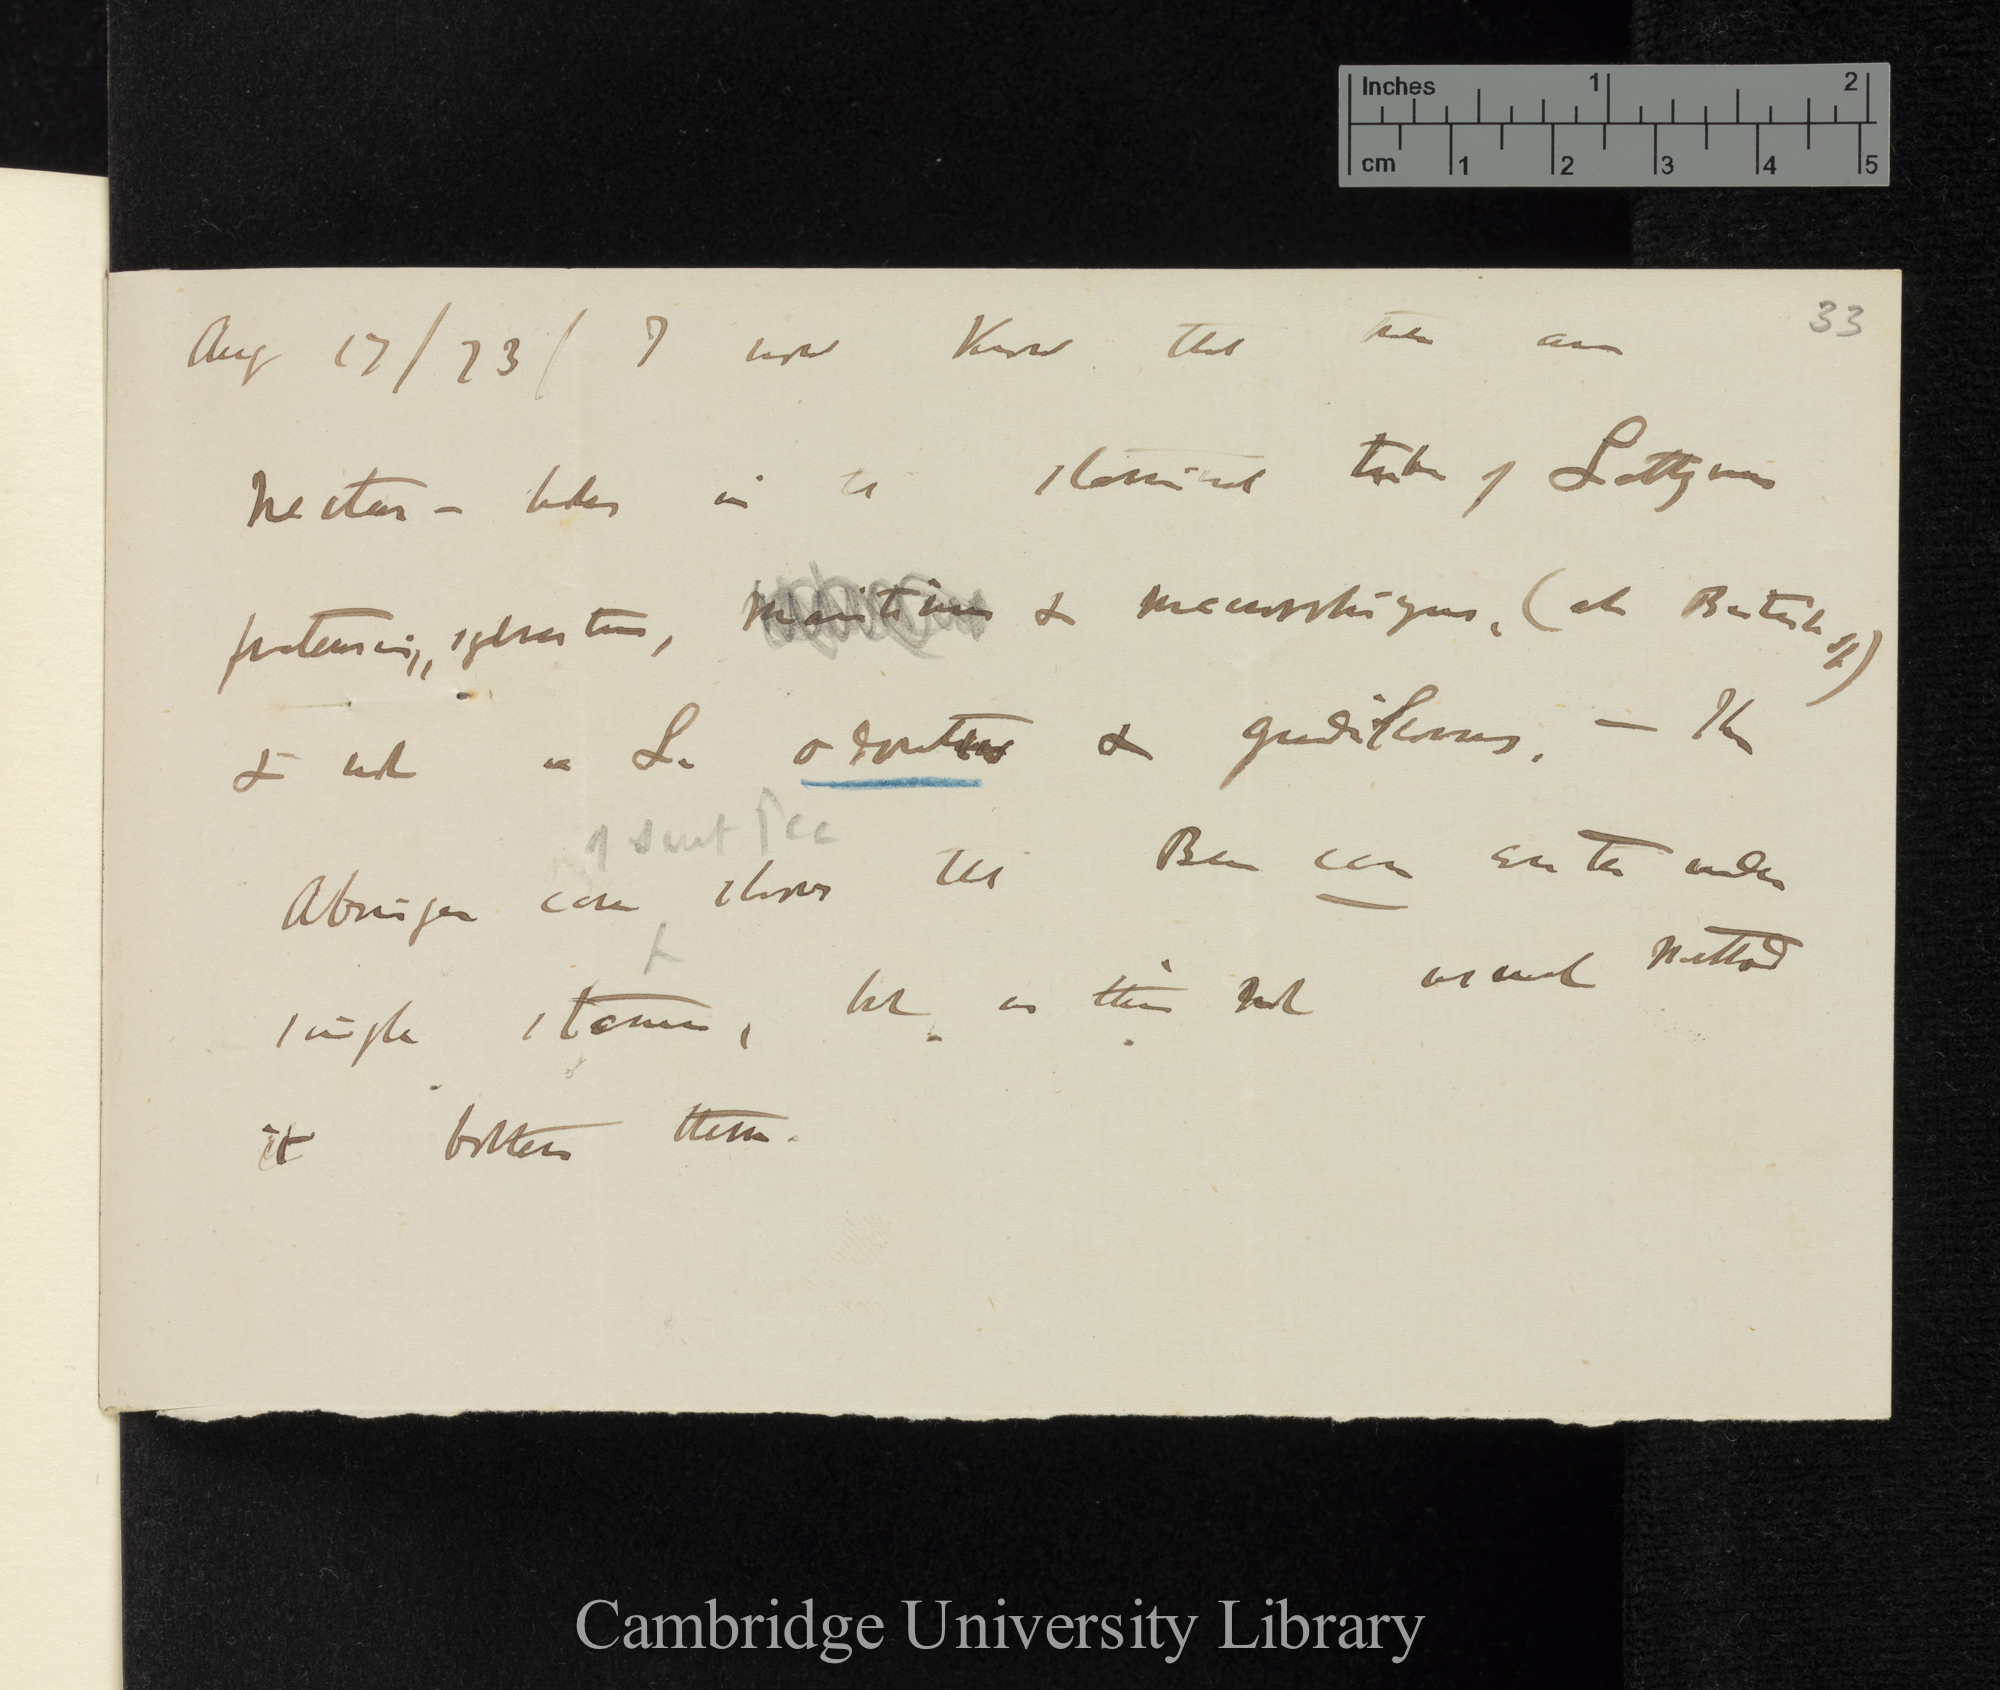 Inches 1 2
cm 1 2 3 4 5
33
Aug 17/73/ I now know that there are
nectar-holes in the staminal tube of Lathyrus
pratensis, sylvestris, maritimus & macrorrhizus, (all British sp)
& not in L. odoratus & grandiflorus. — The
of sweet Pea
Abinger case shows that Bees can enter under
single stamen, but as this not usual method
it bothers them.
Cambridge University Library